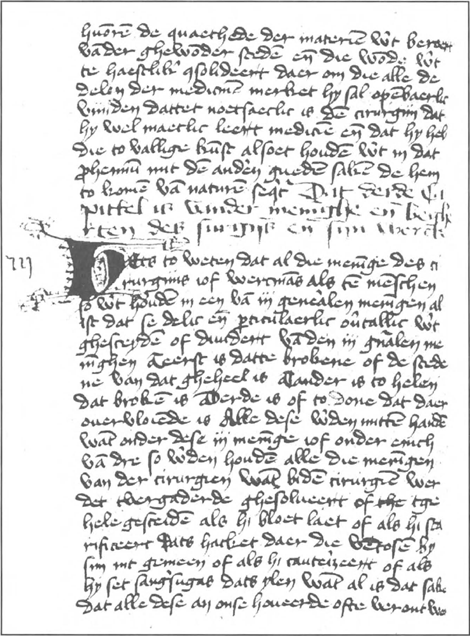 huoren de quaethede der materien wt beroert
vander ghewonder steden en die wonde wt
te haestlikr gsolideert daer om die alle de
delen der medicinen merket hy sal openbaerlic
vinden dattet noetsaeclic is den cirurgin dat
hy wel maetlic leert medicinen en dat hy heb
die to vallige kunst alsoet houden wt in dat
phemiu mit den andren gueden saken de hem
to komen van naturen seqt Dit derde Ca
pittel is vander meninghe en
rten des surgijns en sijn werck
iij Ets to weten dat al die meninge des ci
rurgijns iof wercmans als ten menschen
so wt houden in een van iij generalen meningen al
ist dat se delic en particulaerlic ontallic wt
ghesceiden of dividert vanden iij generalen me
ninghen Aeerst is datte brokene of de scede
ne van dat gheheel is Tander is to helen
dat broken is Derde is of to done dat daer
over vloiende is Alle dese werden mitten handen
want onder dese iij meninge iof onder enich
van dre so werden houden alle die meningen
van der cirurgien want biden cirurgien wer
det tvergaderde ghesolveert of the tge
hele gesceiden als hi bloet laet of als hi sca
rificeert dats hacket daer die ventosen by
sin int gemeen of als hi cauterizeert of als
hy set sangsugas dats ylen want al is dat sake
dat alle dese an onse houeerde ofte veront we